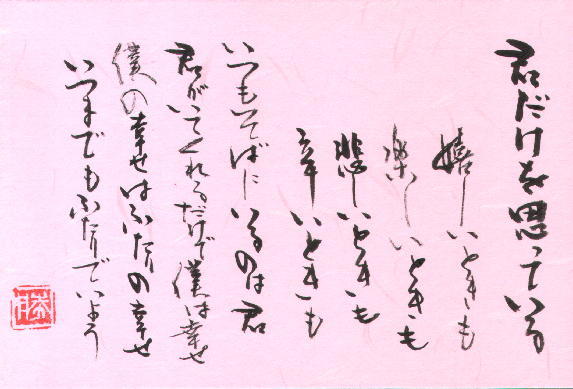 君だけを思っている
嬉しいときも
楽しいときも
悲しいときも
辛いときも
いつもそばにいるのは君
君がいてくれるだけで僕は幸せ
僕の幸せはふたりの幸せ
いつまでもふたりでいよう